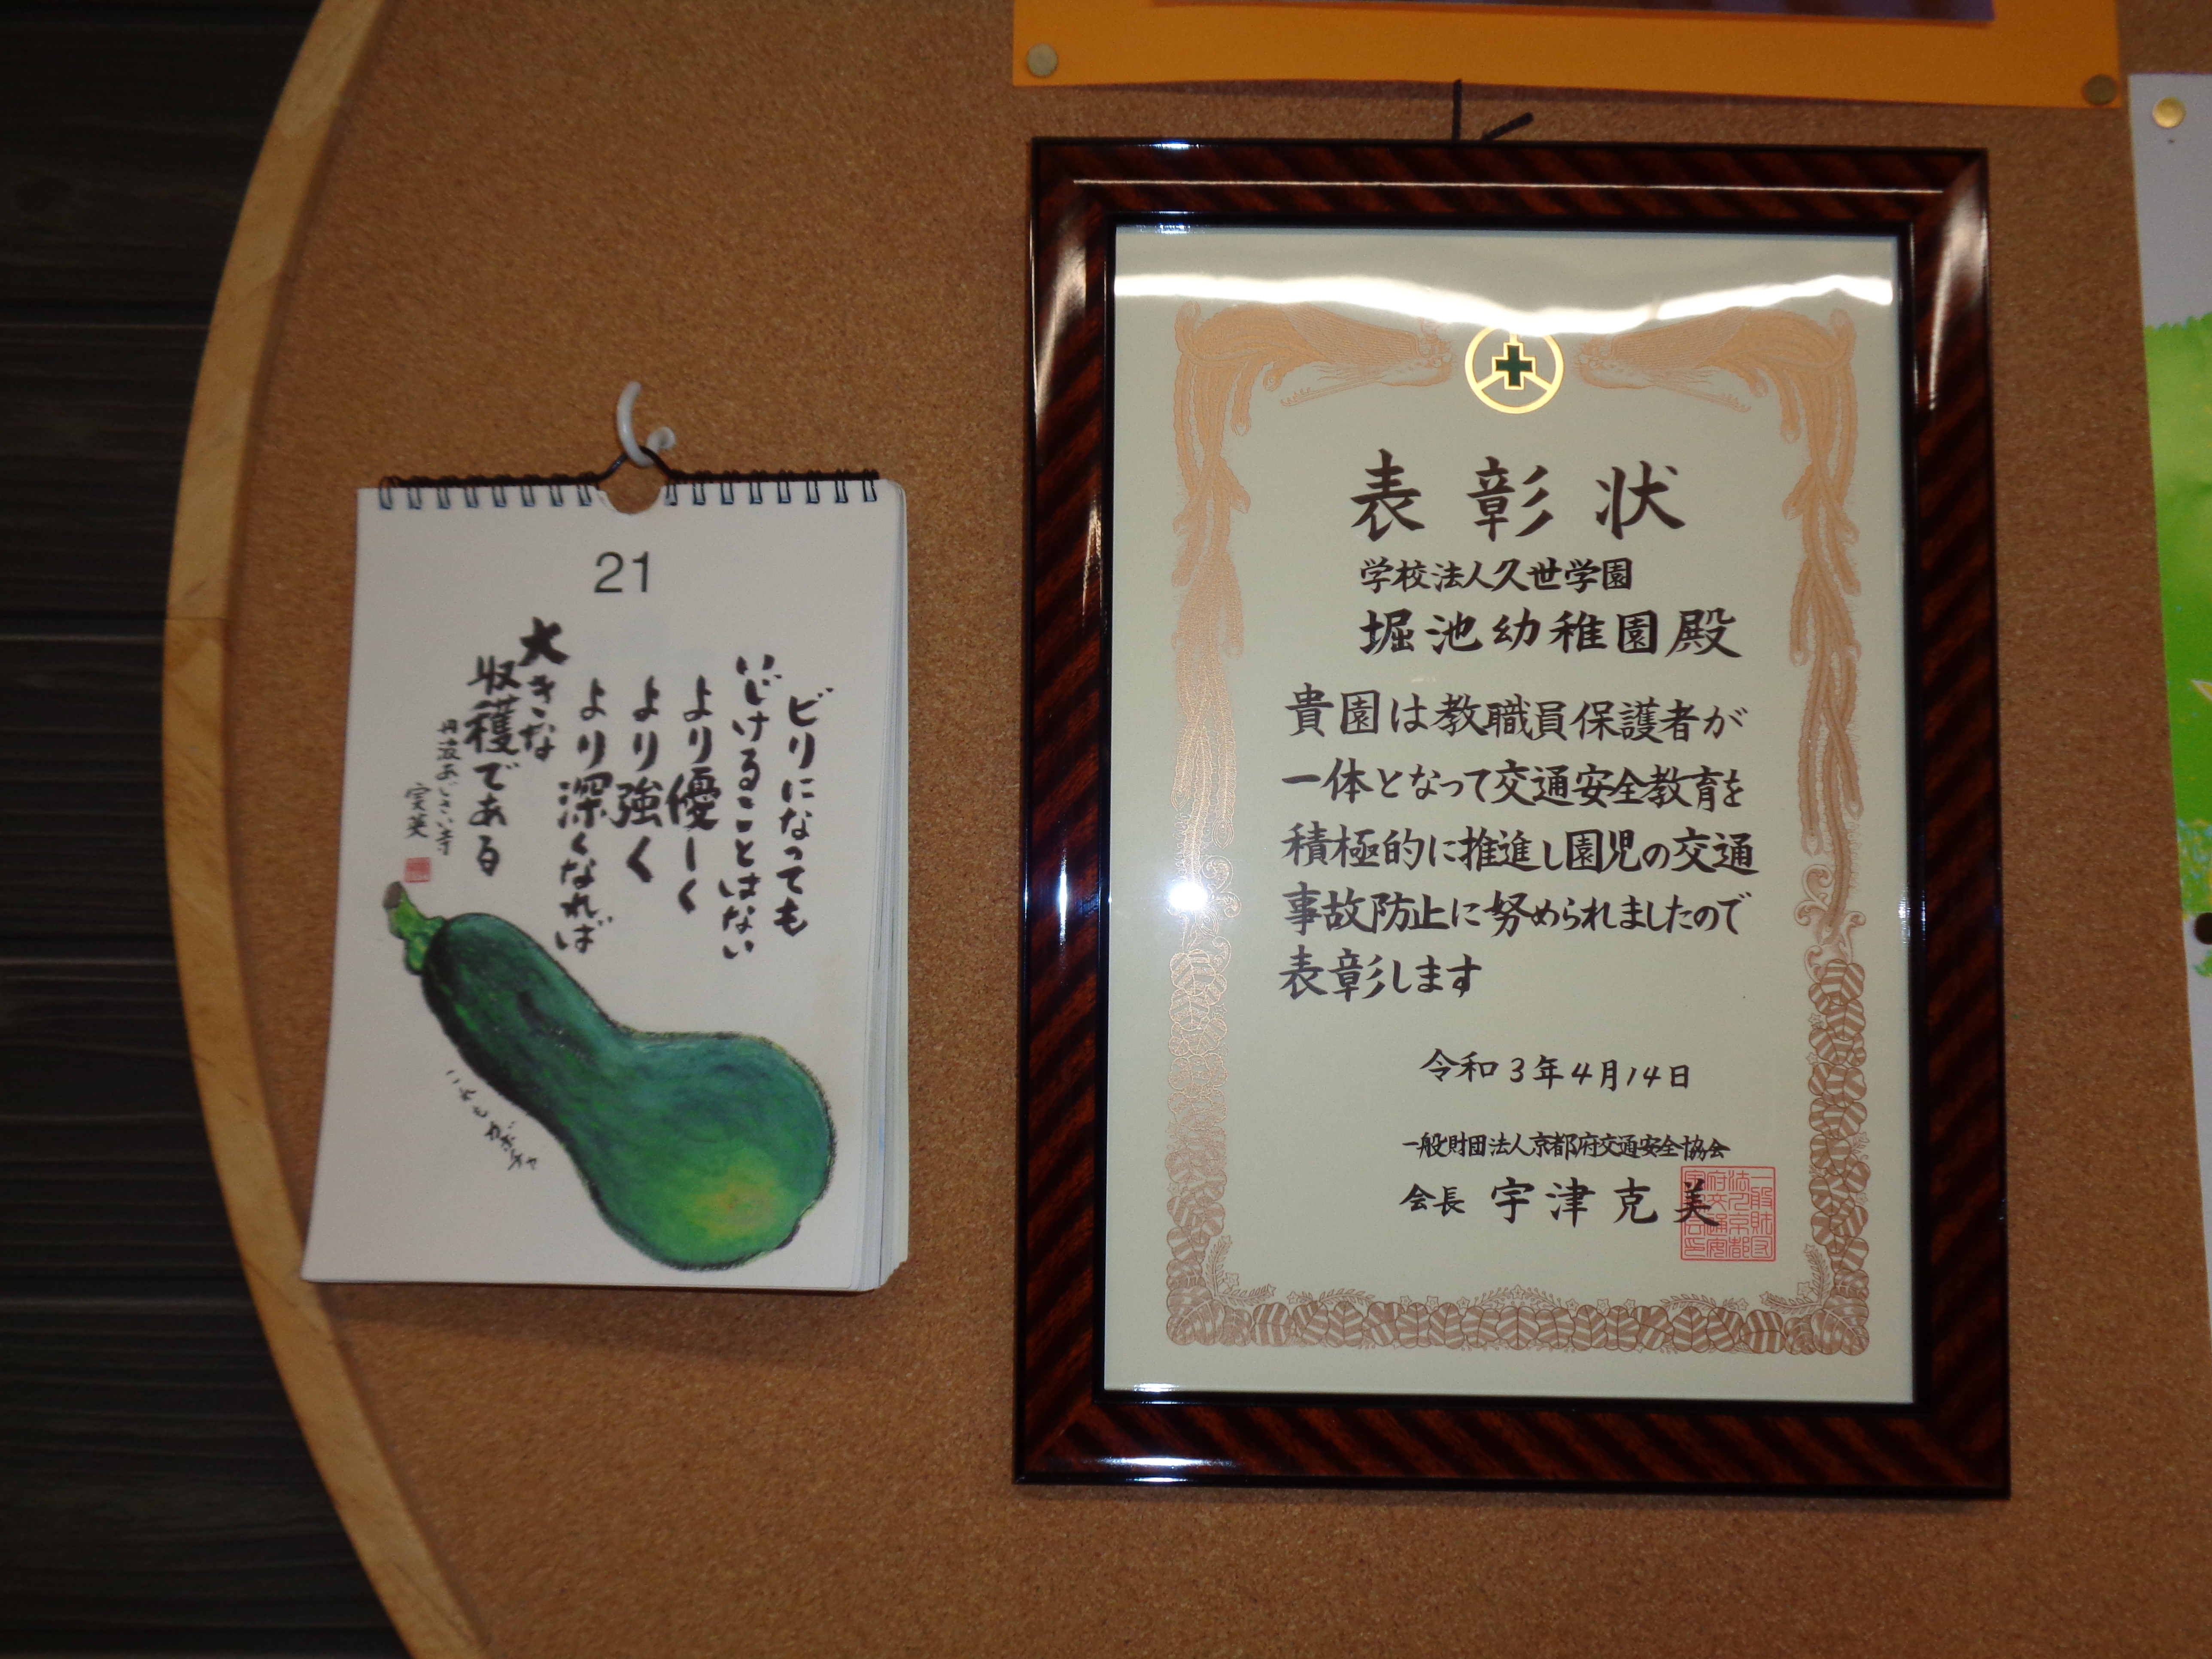 21
ビリになっても
いじけることはない
より優しく
より強く
より深くなれば
大きな
収穫である
丹波あじさい寺
実英
これもカボチャ
表彰状
学校法人久世学園
堀池幼稚園殿
貴園は教職員保護者が
一体となって交通安全教育を
積極的に推進し園児の交通
事故防止に努められましたので
表彰します
令和3年4月14日
一般財団法人京都府交通安全協会
会長 宇津克美